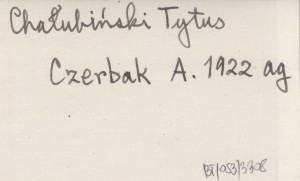 Chałubiński Tytus
Czerbak A. 1922 ag
BI/053/3308